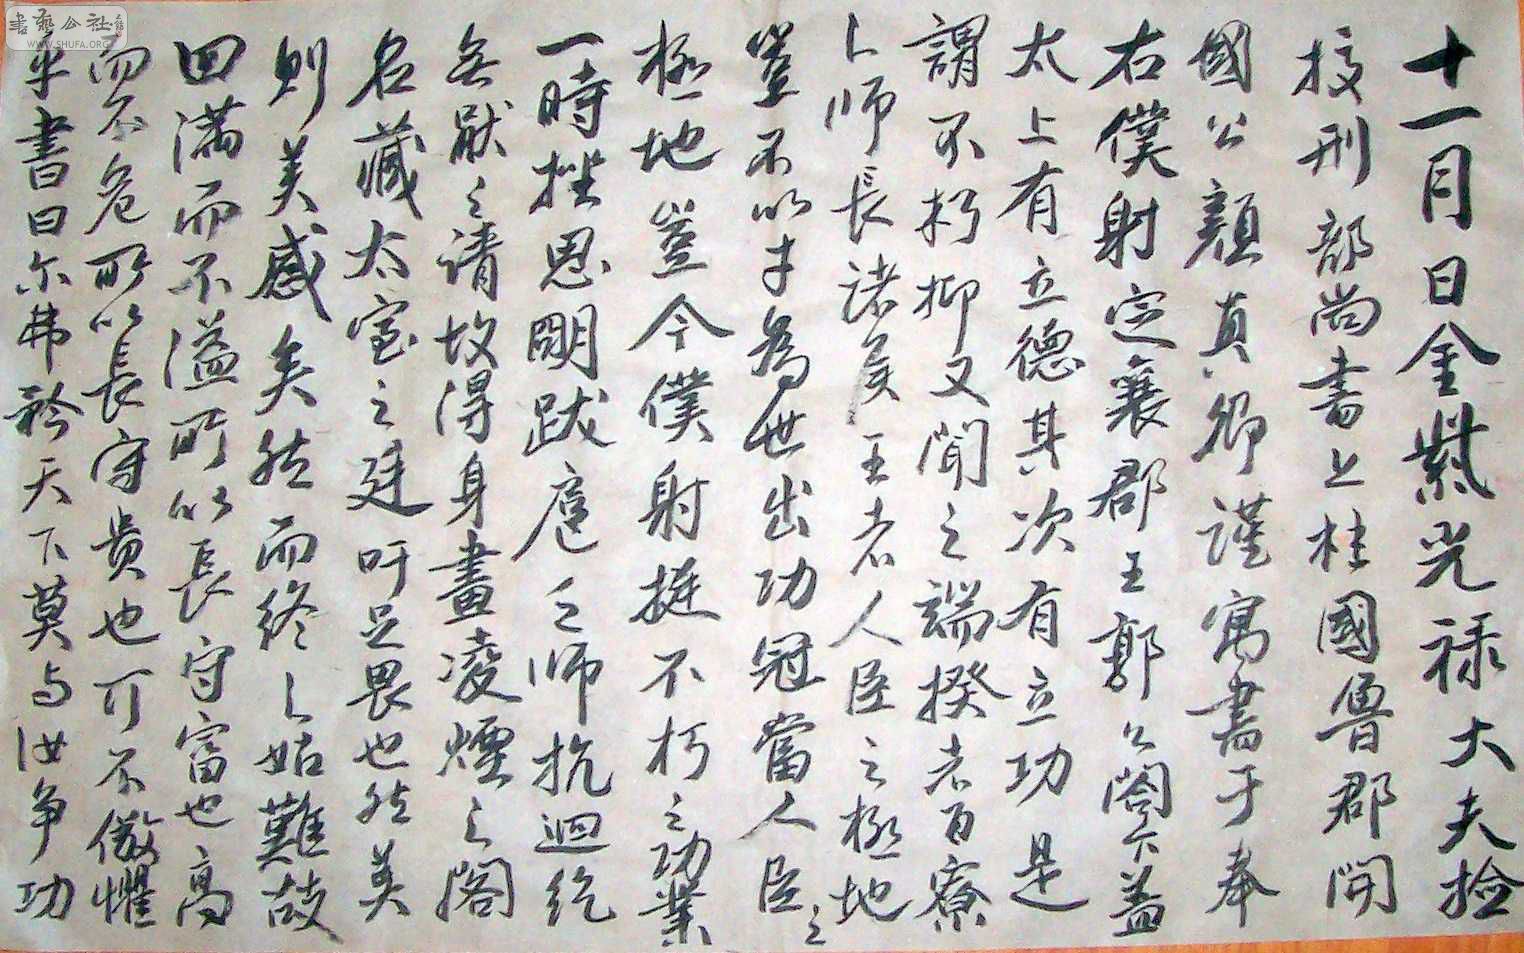 十一月日金紫光禄大夫撿
挍刑部尚書上柱國魯郡開
國公顔真卿謹寓書于奉
右僕射定襄郡王郭公閤下盖
太上有立德其次有立功是
謂不朽抑又聞之端揆者百寮
之師長诸侯王者人臣之極地
豈不以才為世出功冠當人臣之
極地豈今僕射挺不朽之功業
一時挫思明跋扈之師抗迴紇
無猒之請故得身畫凌煙之閣
名藏太室之廷吁足畏也然美
則美感矣然而终之始難故
曰满而不溢所以長守富也高
而不危所以長守贵也可不儆懼
乎書曰尔弗矜天下莫与汝争功
書藝公社
WWW.SHUFA.ORG